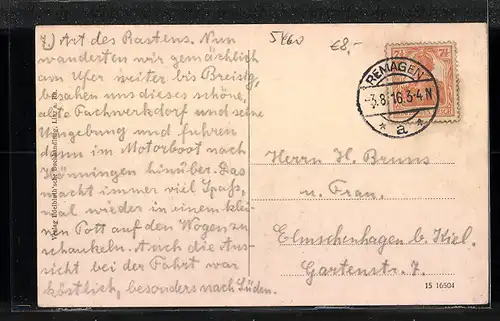 2.) Art des Rastens. Nun
wanderten wir gemächlich
am Ufer weiter bis Breisig,
besahen uns dieses schöne,
alte Fachwerkdorf und seine
Umgebung und fuhren
dann im Motorboot nach
Hönningen hinüber. Das
macht immer viel Spaß,
mal wieder in einem klei-
nen Pott auf den Wogen zu
schaukeln. Auch die Aus-
sicht bei der Fahrt war
köstlich, besonders nach Süden.
Verlag Buchhandlung, Linz a. Rh.
5460
€8,-
REMAGEN
-3.8.16.3-4N
* a *
7½
7½
Herrn H. Bruns
u. Frau.
Elmschenhagen b. Kiel.
Gartenstr. 7.
15 16504